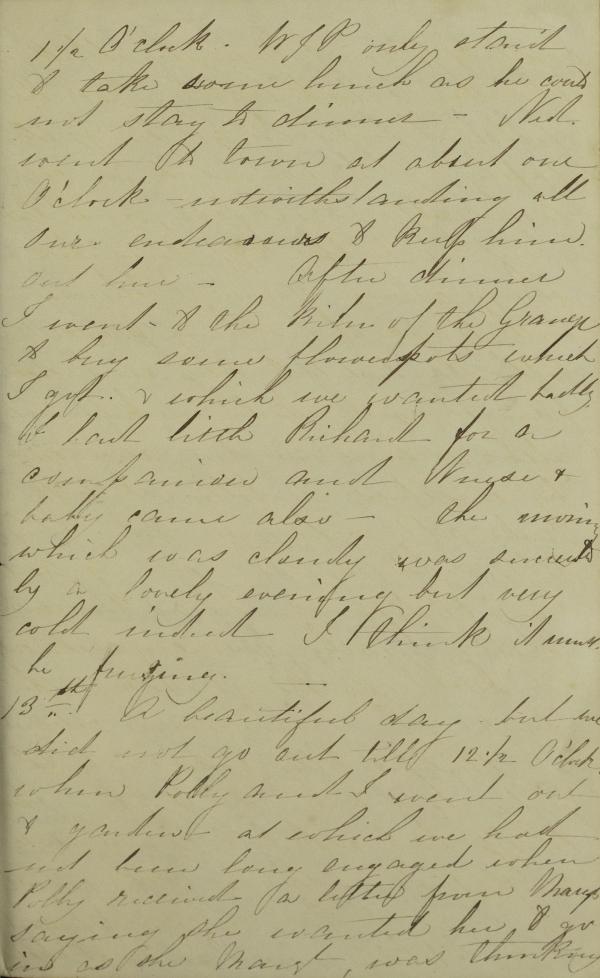 1 1/2 O'clock. WJP only staid
& take some lunch as he could
not stay to dinner - Ned.
went to town at about one
O'clock - notwithstanding all
our endeavours to keep him.
out here - After dinner
I went - to the Kiln of the Grange
to buy some flowerpots which
I got. & which we wanted badly
I had little Richard for a
companion and Nurse &
baby came also - the morning
which was cloudy was succeeded
by a lovely evening but very
cold indeed I think it must
be freezing.
13th. A beautiful day but we
did not go out till 12 1/2 O'clock
when Polly and I went out
to garden - at which we had
not been long engaged when
Polly received a letter from
saying she wanted her to go
in as she was thinking